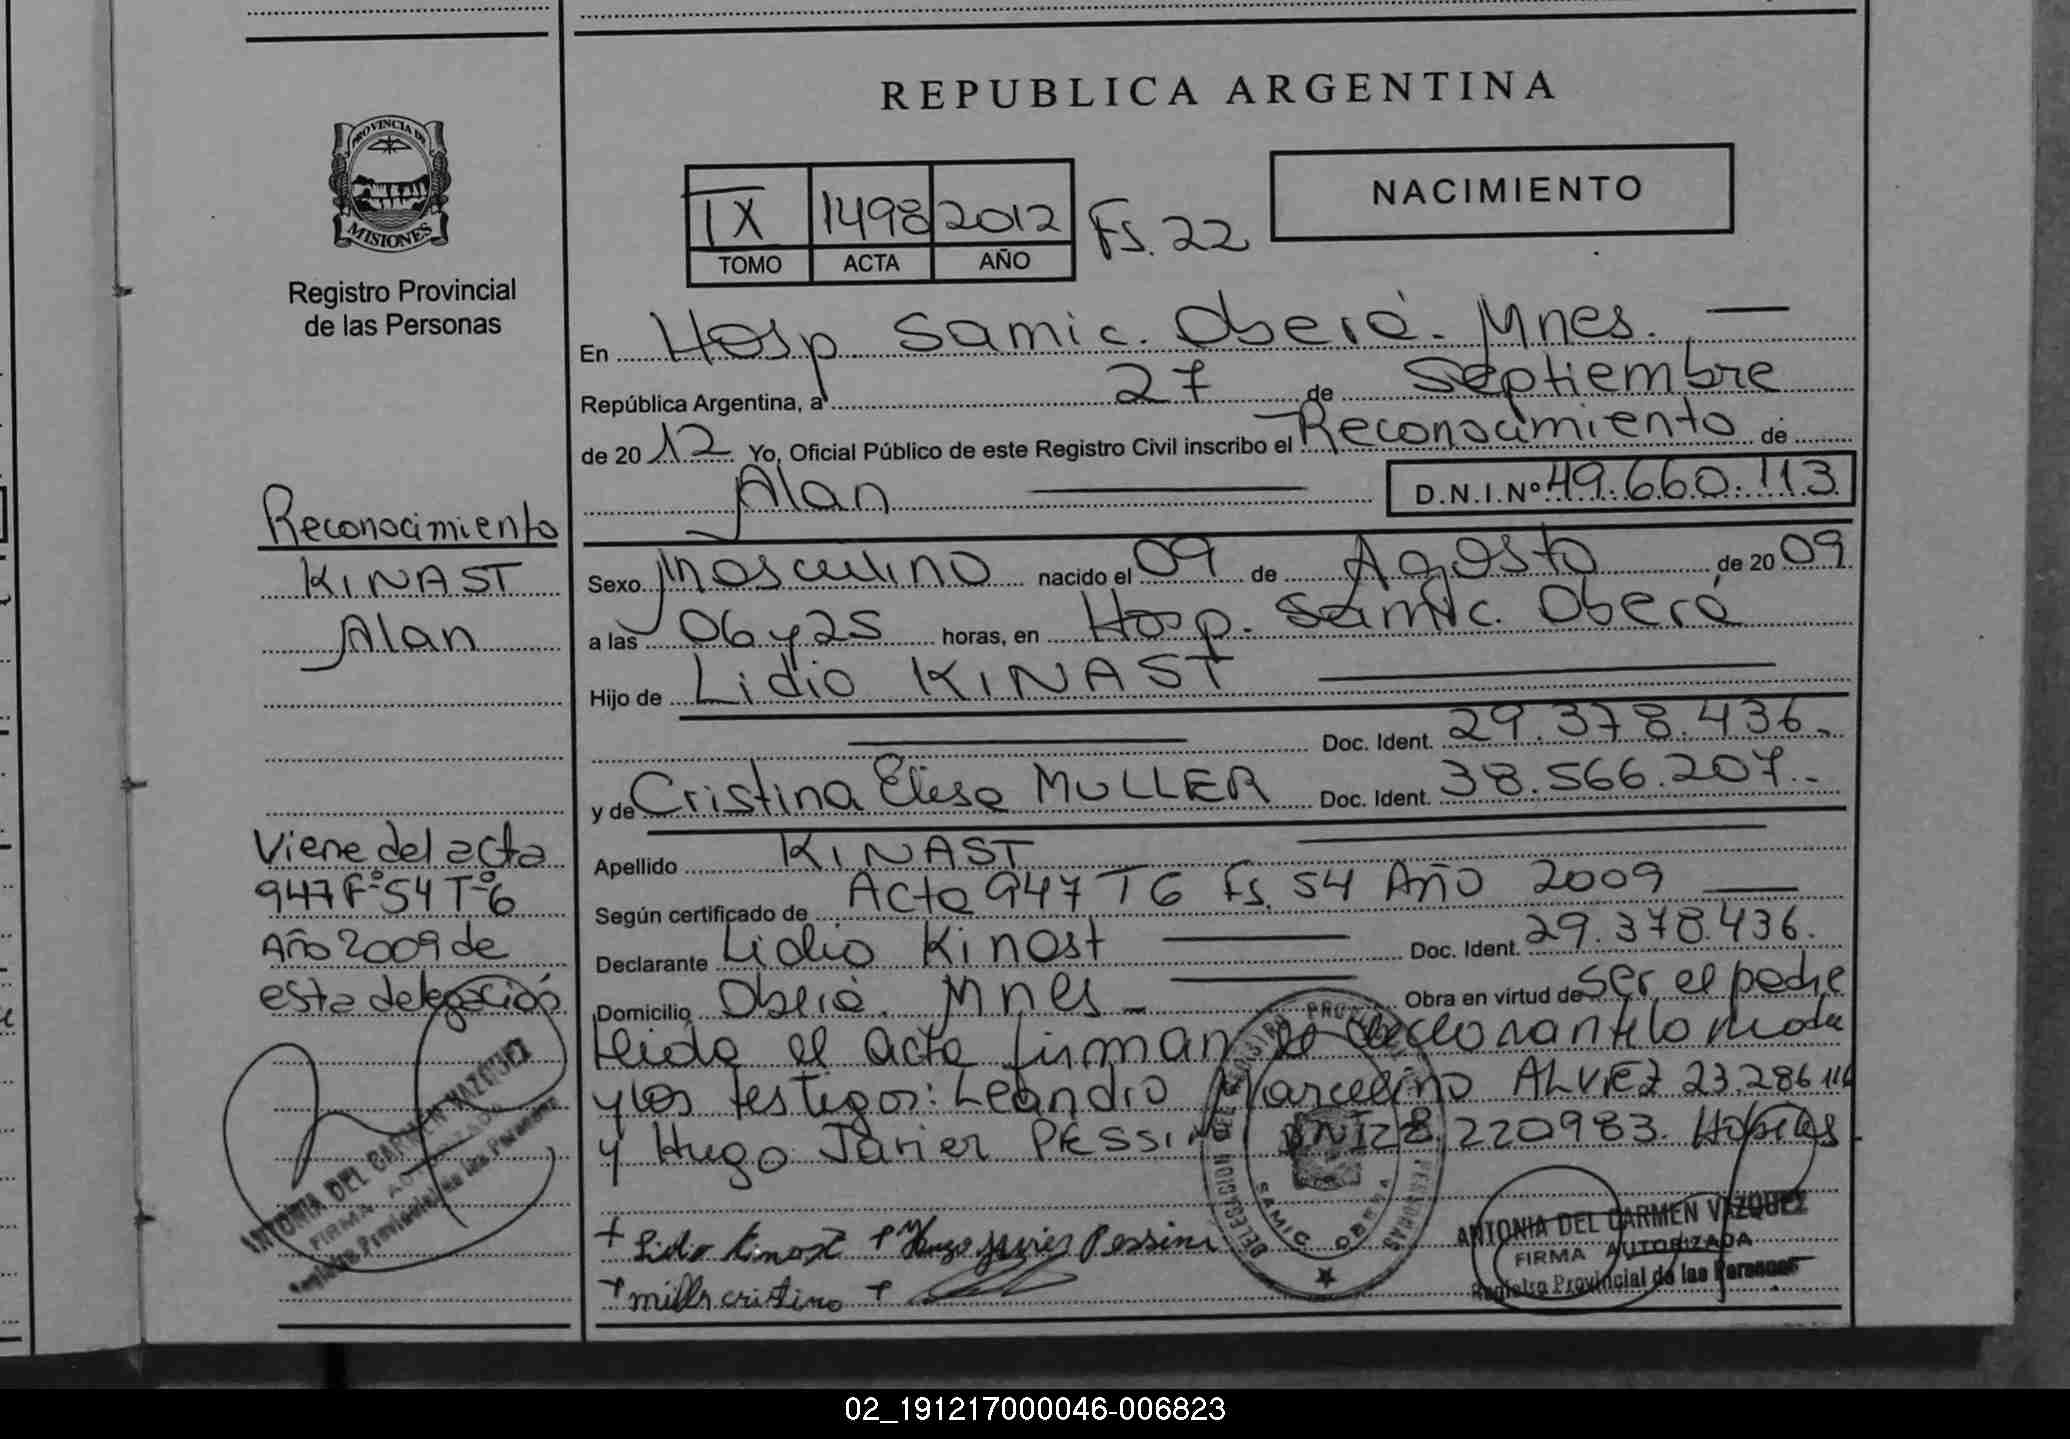 REPUBLICA ARGENTINA
PROVINCIA DE
MISIONES
Registro Provincial
de las Personas
IX 1498 2012 Fs. 22
TOMO ACTA AÑO
NACIMIENTO
En Hosp Samic. Oberá. Mnes.
República Argentina, a 27 de Septiembre
de 2012 Yo, Oficial Público de este Registro Civil inscribo el Reconocimiento de
Alan D.N.I.Nº 49.660.113
Sexo Masculino nacido el 09 de Agosto de 2009
a las 06 y 25 horas, en Hosp. Samic. Oberá
Hijo de Lidio KINAST
Doc. Ident. 29.378.436.
y de Cristina Elisa MULLER Doc. Ident. 38.566.207.
Apellido KINAST
Según certificado de Acta 947 T6 Fs. 54 Año 2009
Declarante Lidio Kinast Doc. Ident. 29.378.436.
Domicilio Oberá. Mnes Obra en virtud de ser el padre
Leida el acta firman el declarante la madre
y los testigos: Leandro Marcelino ALVEZ 23.286.116
y Hugo Javier PESSINI DNI 28.220983. Hábiles
+ Lidio Kinast + Hugo Javier Pessini
+ mullr cristina +
DELEGACION SAMIC OBERA
ANTONIA DEL CARMEN VAZQUEZ
FIRMA AUTORIZADA
Registro Provincial de las Personas
Reconocimiento
KINAST
Alan
Viene del acta
947 Fº 54 Tº 6
Año 2009 de
esta delegación
ANTONIA DEL CARMEN VAZQUEZ
FIRMA AUTORIZADA
Registro Provincial de las Personas
02_191217000046-006823